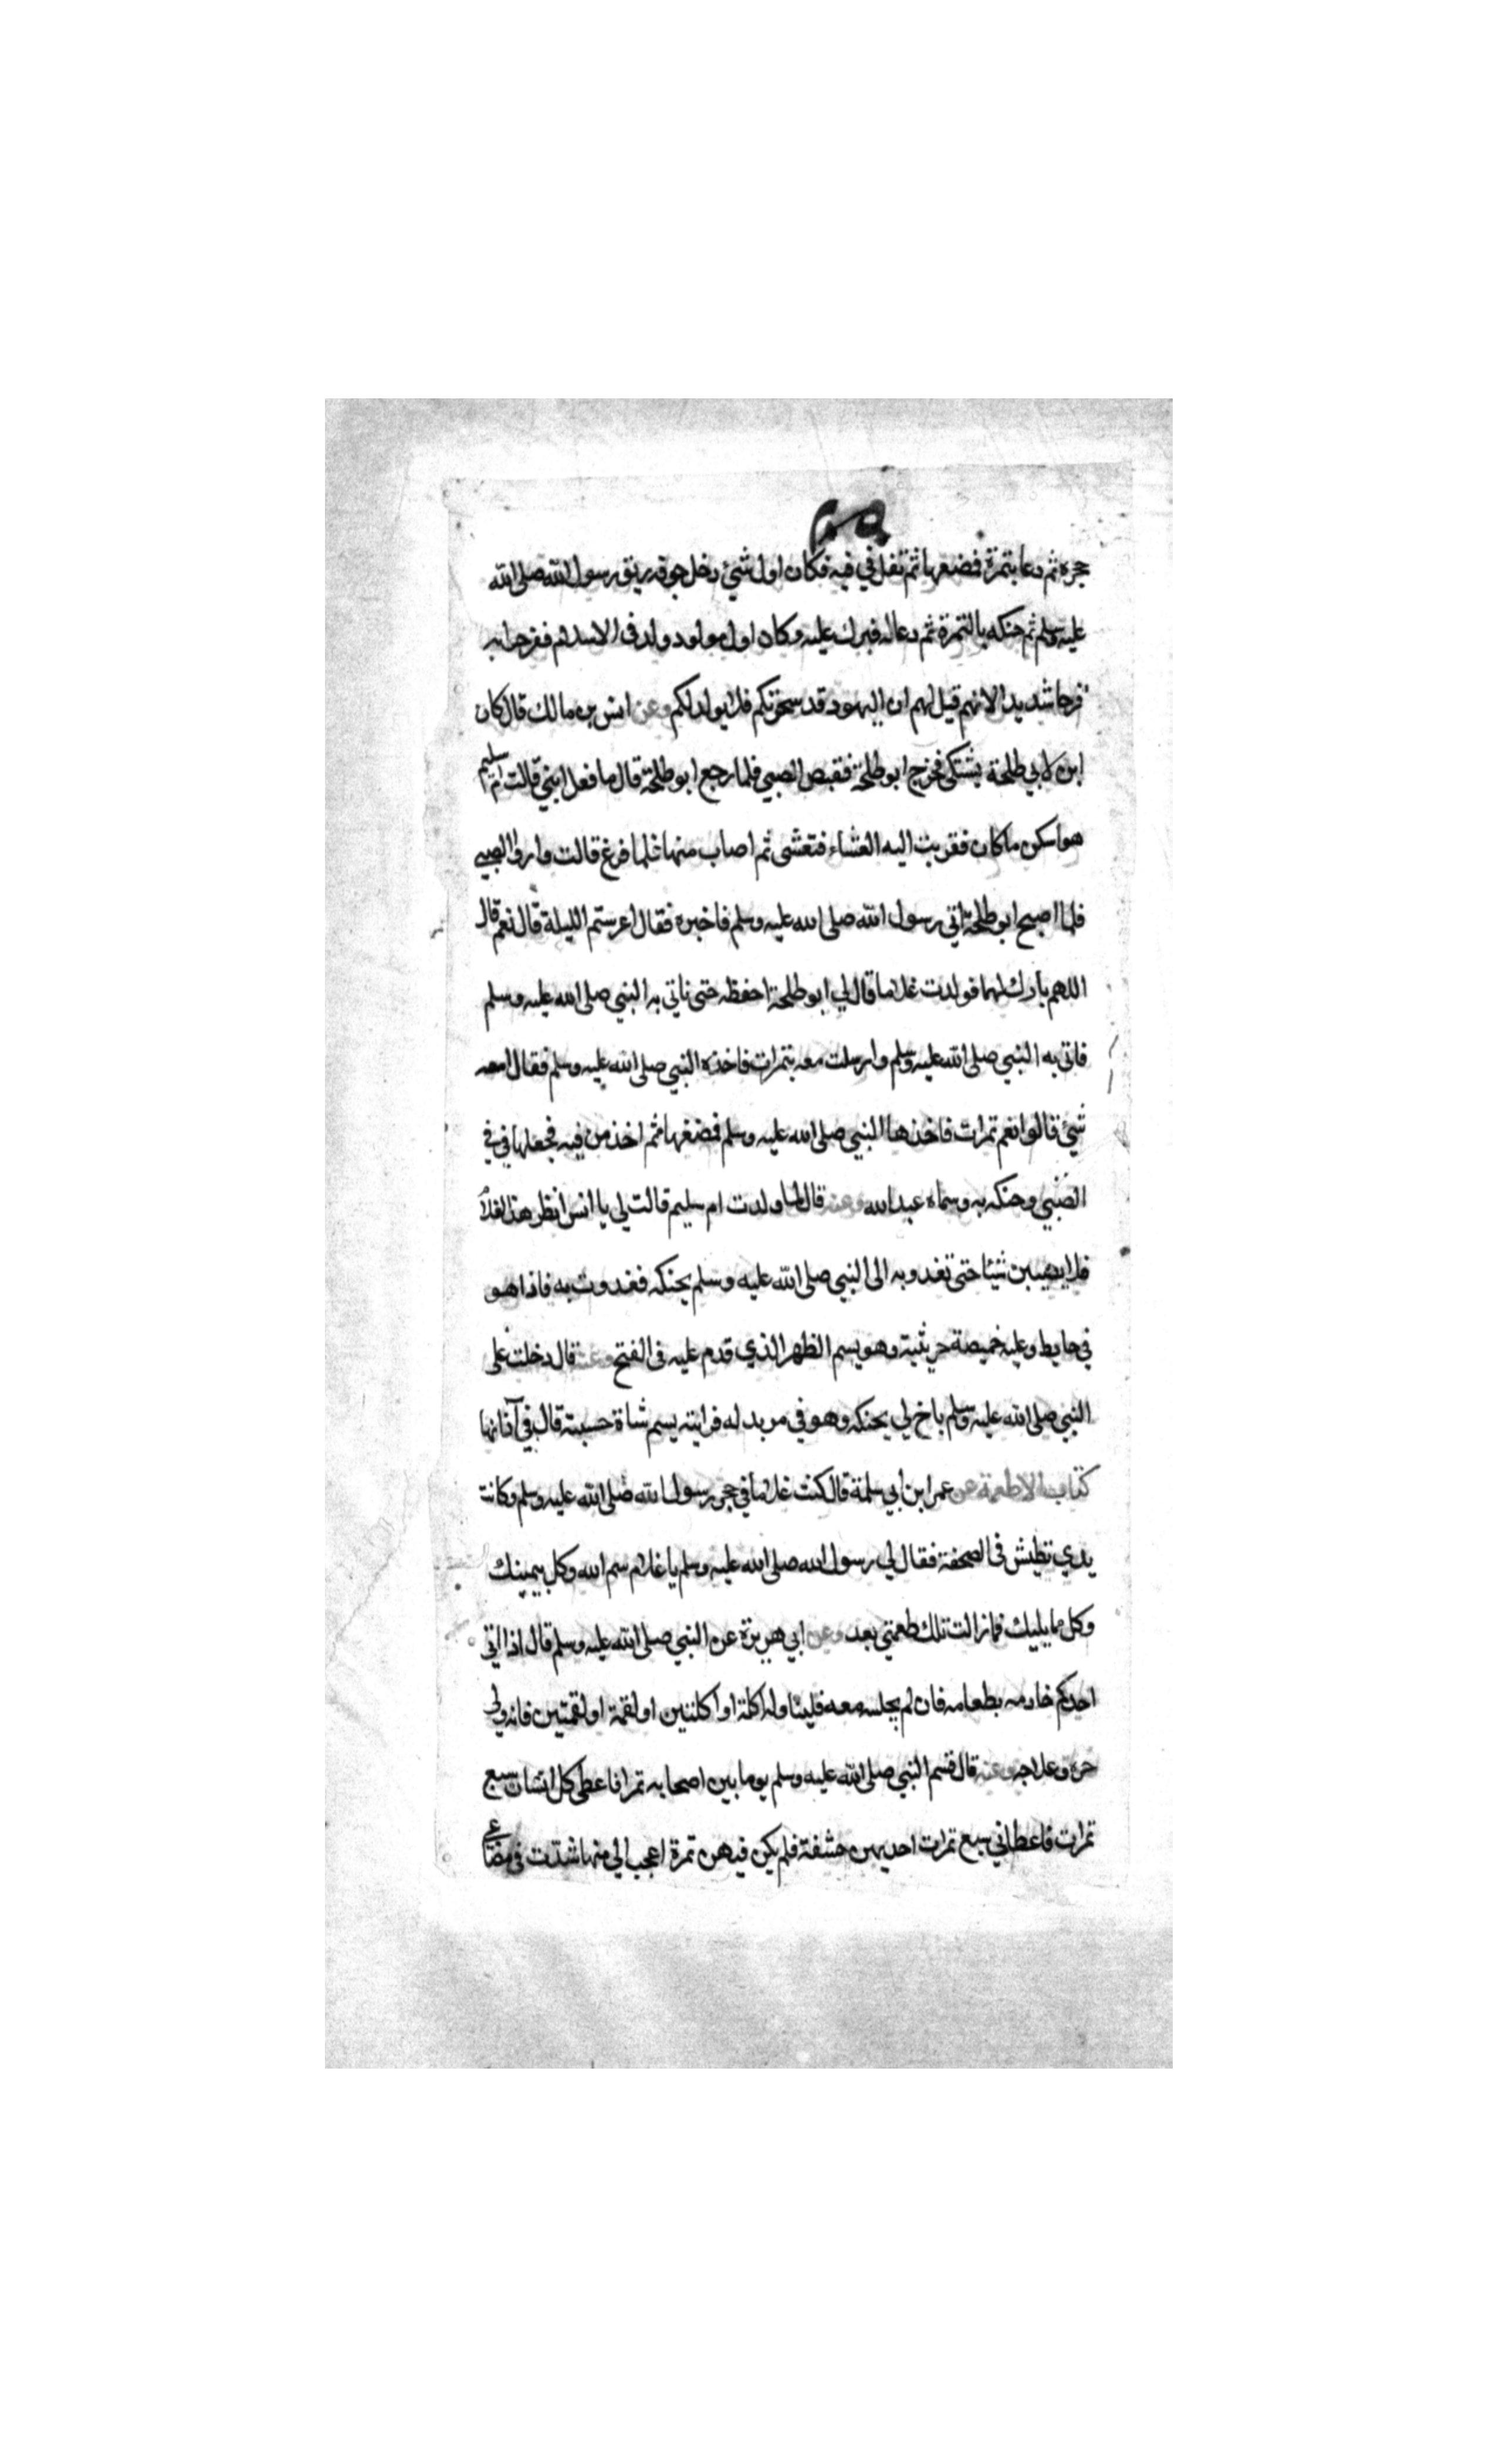 حجره ثم دعا بتمرة فمضغها ثم تفل في فيه فكان اول شيئ دخل جوفه ريق رسول الله صلى الله
عليه وسلم ثم حنكه بالتمرة ثم دعا له فبرك عليه وكان اول مولود ولد في الاسلام ففرحوا به
فرحا شديدا لانهم قيل لهم ان اليهود قد سحرتكم فلا يولد لكم وعن انس بن مالك قال كان
ابن لابي طلحة يشتكي فخرج ابو طلحة فقبض الصبي فلما رجع ابو طلحة قال ما فعل ابني قالت ام سليم
هو اسكن ما كان فقربت اليه العشاء فتعشى ثم اصاب منها فلما فرغ قالت وار الصبي
فلما اصبح ابو طلحة اتى رسول الله صلى الله عليه وسلم فاخبره فقال اعرستم الليلة قال نعم قال
اللهم بارك لهما فولدت غلاما قال لي ابو طلحة احفظه حتى ناتي به النبي صلى الله عليه وسلم
فاتى به النبي صلى الله عليه وسلم وارسلت معه بتمرات فاخذه النبي صلى الله عليه وسلم فقال امعه
شيئ قالوا نعم تمرات فاخذها النبي صلى الله عليه وسلم فمضغها ثم اخذ من فيه فجعلها في في
الصبي وحنكه به وسماه عبدالله وعنه قال لما ولدت ام سليم قالت لي يا انس انظر هذا الغلام
فلا يصيبن شيئا حتى تغدو به الى النبي صلى الله عليه وسلم يحنكه فغدوت به فاذا هو
في حايط وعليه خميصة حريثية وهو يسم الظهر الذي قدم عليه في الفتح وعنه قال دخلت على
النبي صلى الله عليه وسلم باخ لي يحنكه وهو في مربد له فرايته يسم شاة حسبته قال في آذانها
كتاب الاطعمة عن عمر ابن ابي سلمة قال كنت غلاما في حجر رسول الله صلى الله عليه وسلم وكانت
يدي تطيش في الصحفة فقال لي رسول الله صلى الله عليه وسلم يا غلام سم الله وكل بيمينك
وكل مما يليك فما زالت تلك طعمتي بعد وعن ابي هريرة عن النبي صلى الله عليه وسلم قال اذا اتى
احدكم خادمه بطعامه فان لم يجلسه معه فليناوله اكلة او اكلتين او لقمة او لقمتين فانه ولي
حره وعلاجه وعنه قال قسم النبي صلى الله عليه وسلم يوما بين اصحابه تمرا فاعطى كل انسان سبع
تمرات فاعطاني سبع تمرات احديهن حشفة فلم يكن فيهن تمرة اعجب الي منها شدت في مضاغي